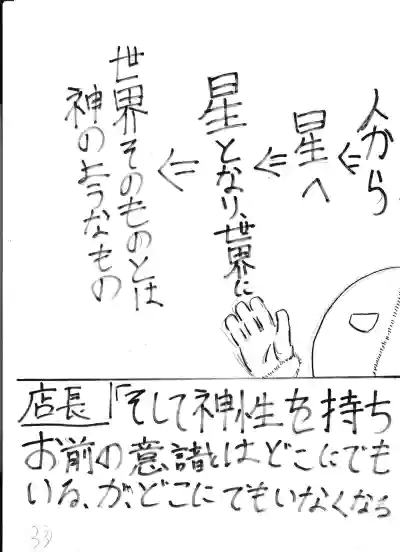 人から
星へ
星となり、世界に
世界そのものとは
神のようなもの
店長「そして神性を持ち
お前の意諸とはどこにでも
いる、が、どこにでもいなくなる
33